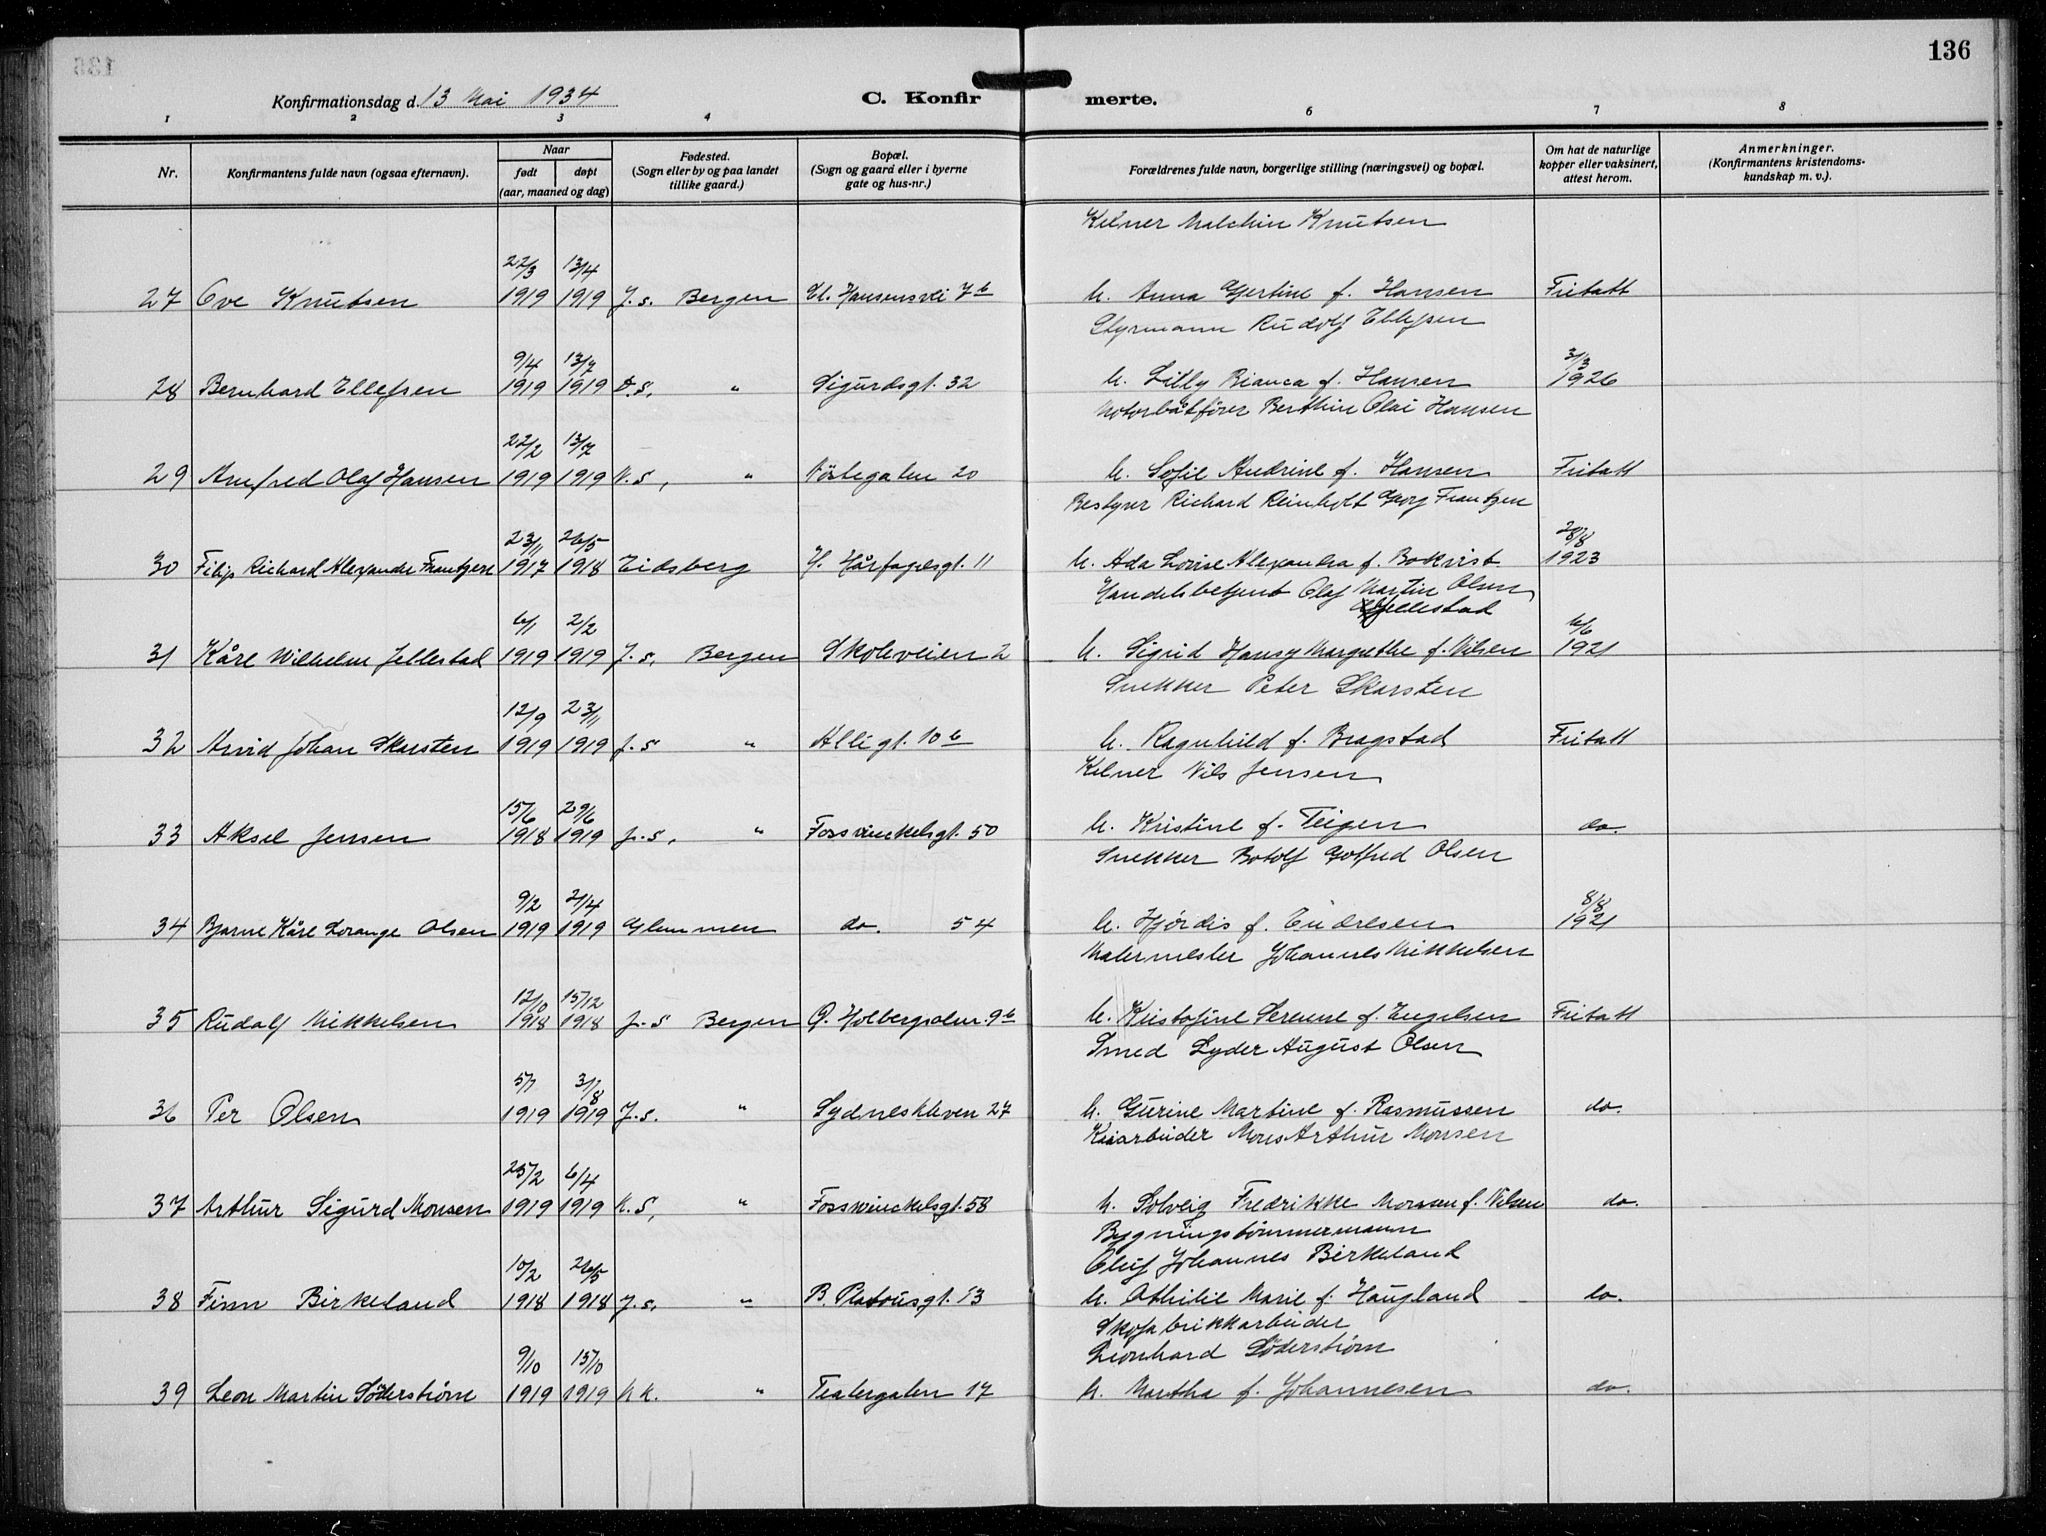 136
Konfirmationsdag d. 13 Mai 1934
C. Konfir
merte.
1 2 3 4 6 7 8
Nr.
Konfirmantens fulde navn (ogsaa efternavn).
Naar
født døpt
(aar, maaned og dag)
Fødested.
(Sogn eller by og paa landet
tillike gaard.)
Bopæl.
(Sogn og gaard eller i byerne
gate og hus-nr.)
Forældrenes fulde navn, borgerlige stilling (næringsvei) og bopæl.
Om hat de naturlige
kopper eller vaksinert,
attest herom.
Anmerkninger.
(Konfirmantens kristendoms-
kundskap m. v.).
Kelner Malchin Knutsen
22/3 13/4
27 Ove Knutsen 1919 1919 J. s. Bergen Cl. Hansensvei 7b h. Anna Gjertine f. Hansen Fritatt
Styrmann Rudolf Ellefsen
9/4 13/7 3/3
28 Bernhard Ellefsen 1919 1919 D. s. " Sigurdsgt. 32 h. Lilly Bianca f. Hansen 1926
Motorbåtfører Berthin Olai Hansen
22/2 13/7
29 Arnfred Olaf Hansen 1919 1919 N. s. " Nöstegaten 20 h. Sofie Andrine f. Hansen Fritatt
Bestyrer Richard Reinholt Georg Frantzen
23/11 26/5 28/8
30 Filip Richard Alexander Frantzen 1917 1918 Eidsberg H. Hårfagresgt. 11 h. Ada Lovise Alexandra f. Bokvist 1923
Handelsbetjent Olaf Martin Olsen
Gjellestad
6/1 2/2 6/6
31 Kåre Wilhelm Jellestad 1919 1919 J. s. Bergen Skoleveien 2 h. Sigrid Hansy Margrethe f. Nilsen 1921
Snekker Peter Skarsten
12/9 23/11
32 Arvid Johan Skarsten 1919 1919 J. s " Alligt. 10b h. Ragnhild f. Bragstad Fritatt
Kelner Nils Jensen
15/6 29/6
33 Aksel Jensen 1918 1919 J. s. " Fosswinckelsgt. 50 h. Kristine f. Teigen do.
Snekker Botolf Gotfred Olsen
9/2 21/4 8/8
34 Bjarne Kåre Lorange Olsen 1919 1919 Glemmen do. 54 h. Hjørdis f. Endresen 1921
Malermester Johannes Mikkelsen
12/10 15/12
35 Rudolf Mikkelsen 1918 1918 J. s Bergen Q. Holbergsalm. 9b h. Kristofine Serenne f. Engelsen Fritatt
Smed Lyder August Olsen
5/1 3/8
36 Per Olsen 1919 1919 J. s. " Sydneskleven 27 h. Gurine Martine f. Rasmussen do.
Kaiarbeider Mons Arthur Monsen
25/2 6/4
37 Arthur Sigurd Monsen 1919 1919 K. S. " Fosswinckelsgt. 58 h. Solveig Fredrikke Monsen f. Nilsen do.
Bygningstømmermann
Oluf Johannes Birkeland
10/2 26/5
38 Finn Birkeland 1918 1918 J. s. " B. Platousgt. 13 h. Othilie Marie f. Haugland do.
Skofabrikkarbeider
Leonhard Söderstrøm
9/10 15/10
39 Leon Martin Söderstrøm 1919 1919 N K. " Teatergaten 17 h. Martha f. Johannesen do.